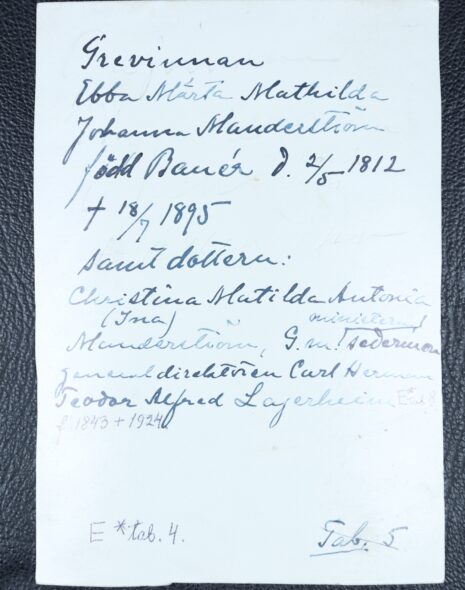 Grevinnan
Ebba Märta Mathilda
Johanna Manderström
född Banér d. 2/5 1812
† 18/7 1895
samt dottern:
Christina Matilda Antonia
(Ina) ministern
Manderström, G.m. sedermera
generaldirektören Carl Herman
Teodor Alfred Lagerheim
f. 1843 + 1924
E * tab. 4.
Tab. 5